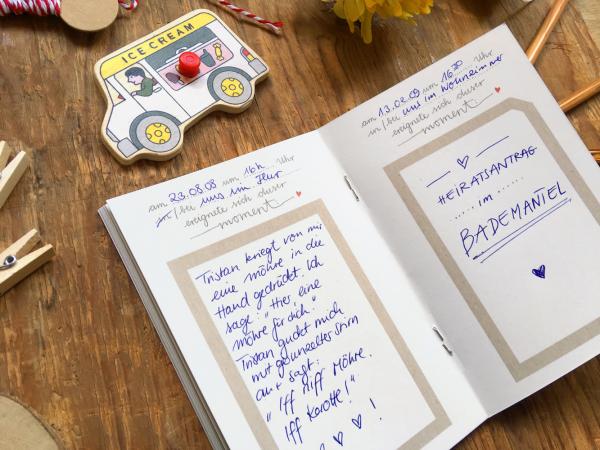 ICE CREAM
am 23.08.08 um 16h Uhr
in/bei uns im Flur
ereignete sich dieser
moment
Tristan kriegt von mir
eine möhre in die
Hand gedrückt. Ich
sage: "Hier eine
möhre für dich."
Tristan guckt mich
mit gerunzelter Stirn
an + sagt:
"Iff niff Möhre.
Iff Karotte!"
!
am 13.02.09 um 16³⁰ Uhr
in/bei uns im Wohnzimmer
ereignete sich dieser
moment
HEIRATSANTRAG
...... im ......
BADEMANTEL